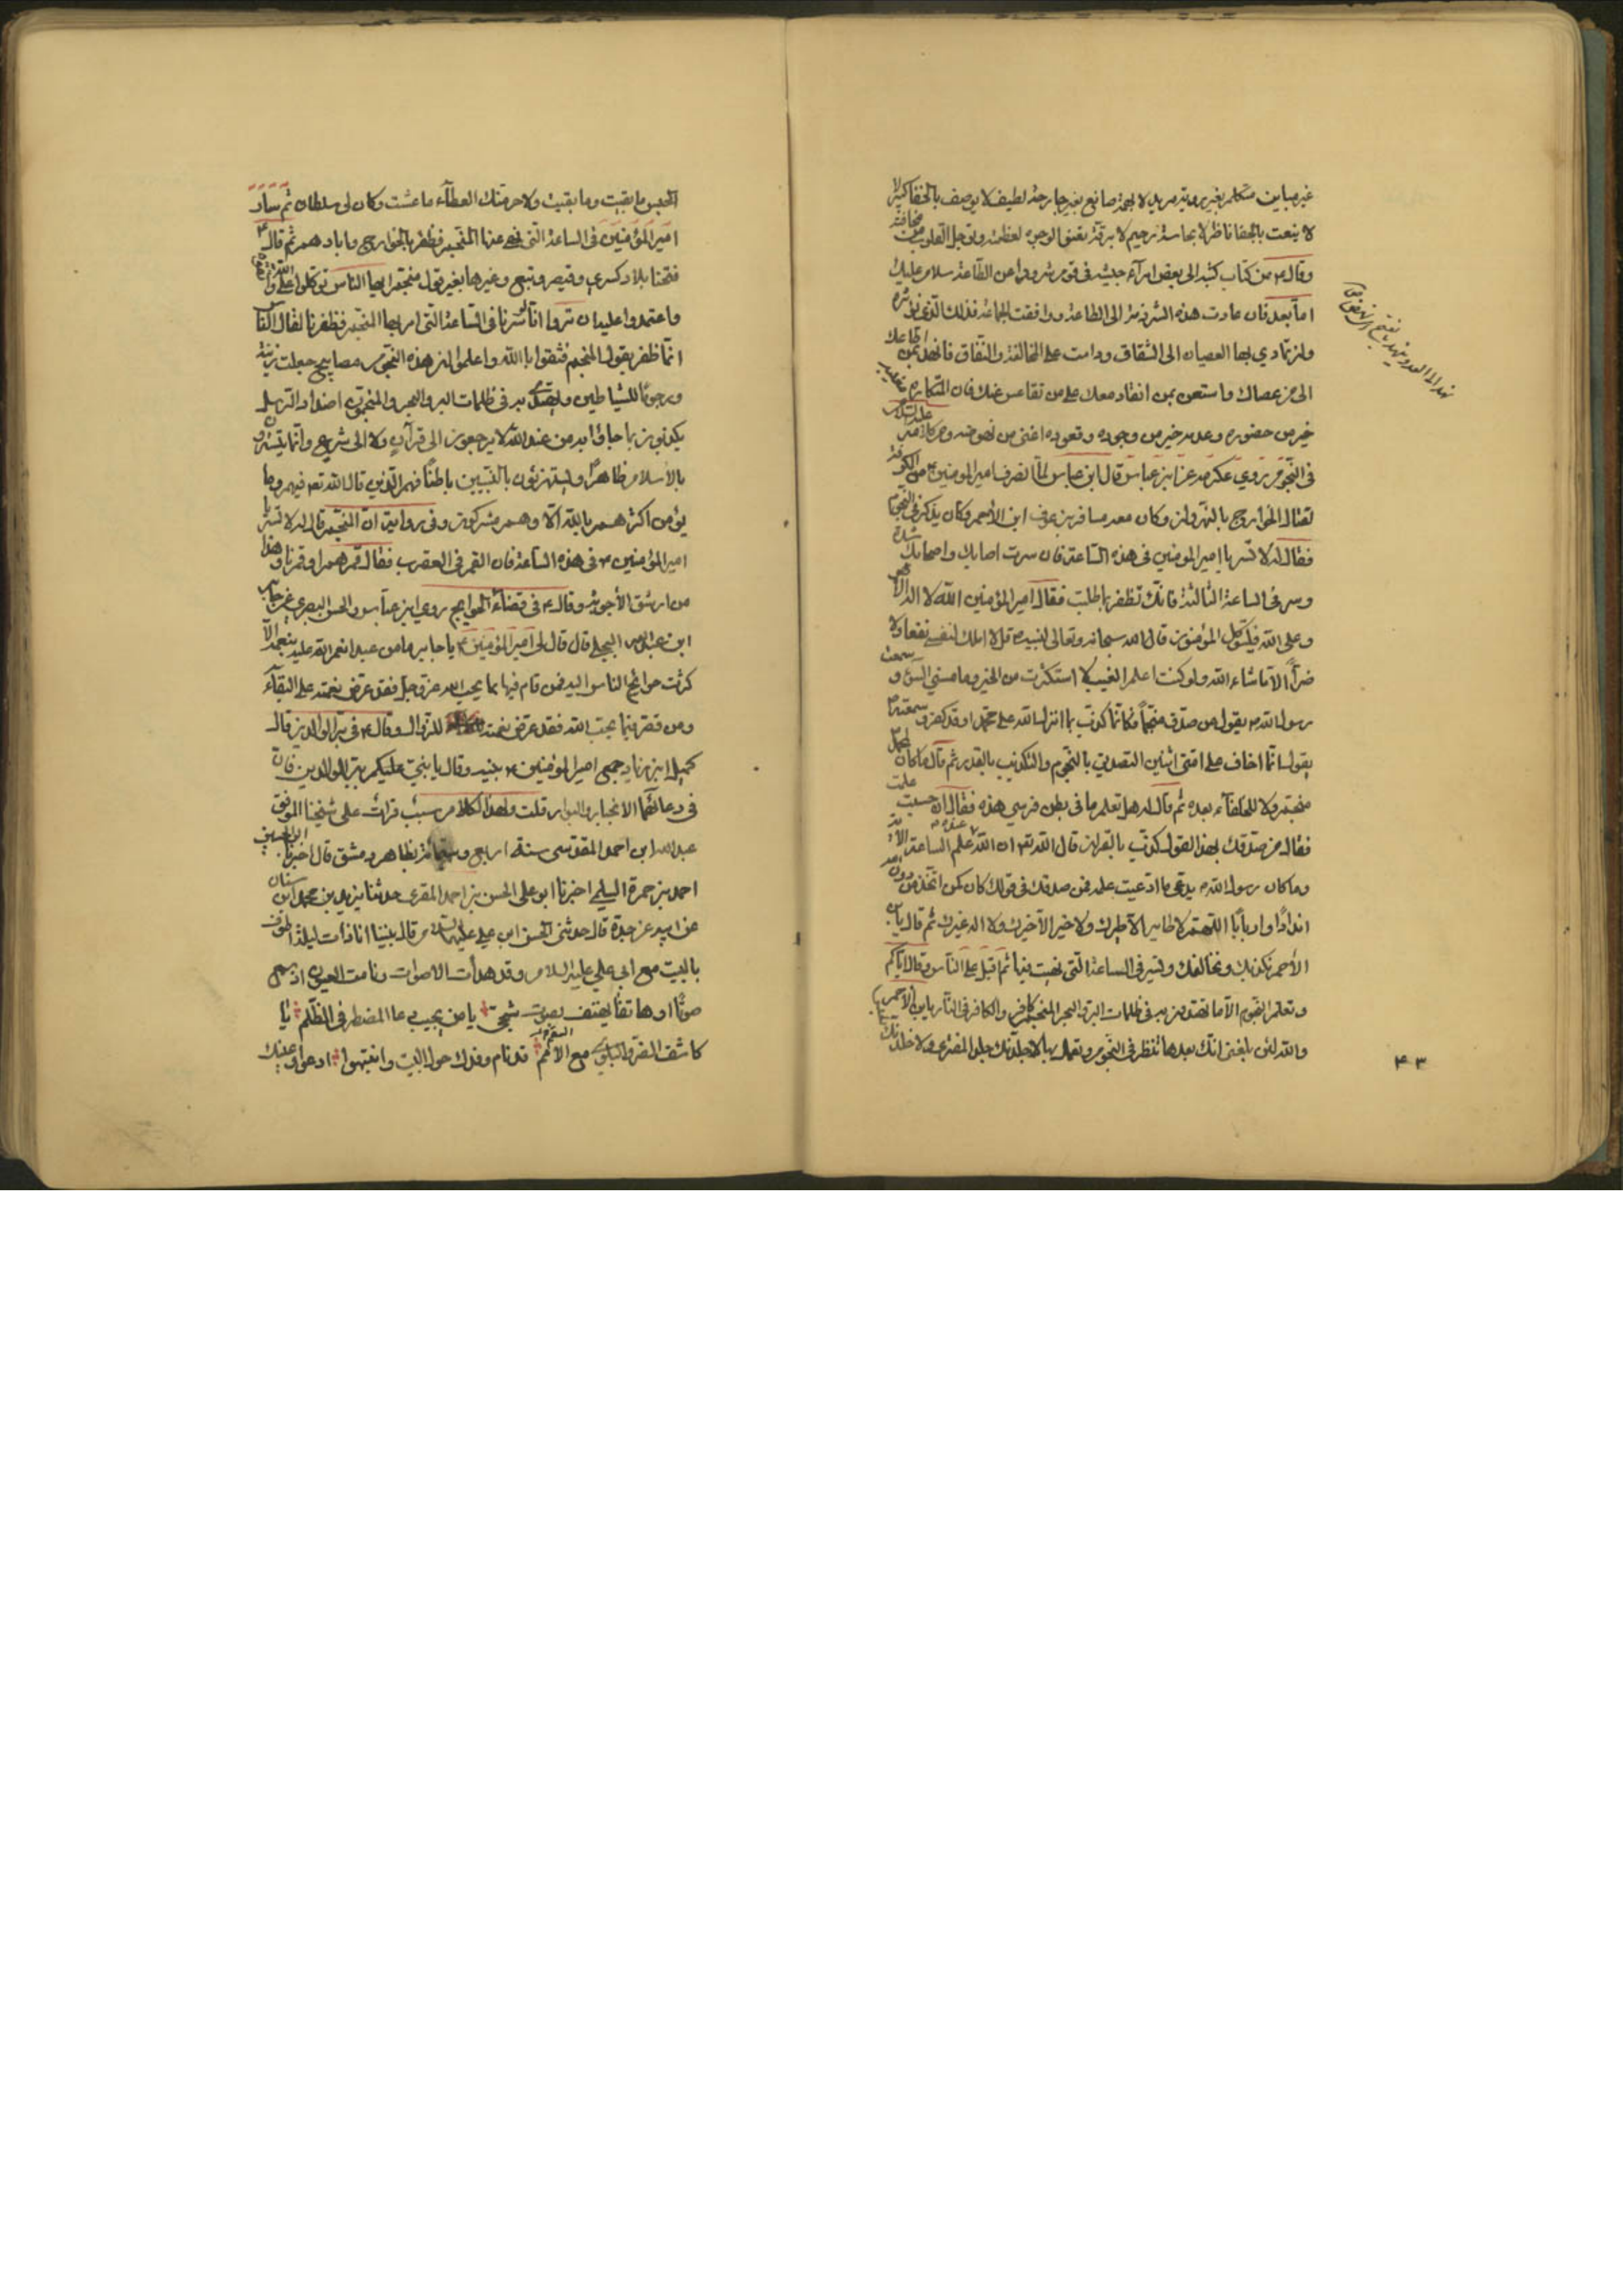 غير مباين متكلم بغير روية مريد لا بهمة صانع بغير جارحة لطيف لا يوصف بالخفا كبير
لا ينعت بالجفا ناظر لا بحاسة رحيم لا برقة تعنو الوجوه لعظمته وتوجل القلوب من مخافته
وقال ۴ من كتاب كتبه الى بعض امرآء جيشه فى قوم شردوا عن الطاعة سلام عليك
اما بعد فان عادت هذه الشرذمة الى الطاعة ووافقت الجماعة فذلك الذى نوثره
وان تمادي بها العصيان الى الشقاق ودامت على المخالفة والنفاق فانهد بمن اطاعك
الى من عصاك واستعن بمن انقاد معك على من تقاعس عنك فان المتكاره مغيبه
خير من حضوره وعدمه خير من وجوده وقعوده اغنى من نهوضه ومن كلامه عليه السلام
فى النجوم روي عكرمة عن ابن عباس قال ابن عباس لما انصرف امير المومنين ۴ من الكوفة
لقتال الخوارج بالنهروان وكان معه مسافر بن عوف ابن الأحمر وكان ينظر فى النجوم
فقال له لا تسر يا امير المومنين فى هذه الساعة فان سرت اصابك واصحابك شدة
وسر فى الساعة الثالثة فانك تظفر بما طلبت فقال امير المؤمنين الله لا اله الا هو
وعلى الله فليتوكل المؤمنون قال الله سبحانه وتعالى لنبيه ص قل لا املك لنفسى نفعا ولا
ضراً الا ما شاء الله ولو كنت اعلم الغيب لا استكثرت من الخير وما مسني السوء و سمعت
رسول الله ص يقول من صدق منجماً فكانما كذب بما انزل الله على محمد او قد كفر و سمعته
يقول انما اخاف على امتى اثنين التصديق بالنجوم والتكذيب بالقدر ثم قال ما كان لمحمد
منجم ولا للخلفاء بعده ثم قال له هل تعلم ما فى بطن فرسي هذه فقال ان حسبت علمت
فقال من صدقك بهذا القول كذب بالقران قال الله تعه ان الله عنده علم الساعة الآية
وما كان رسول الله ص يدعى ما ادعيت علمه فمن صدقك فى قولك كان كمن اتخذ من دون الله
اندادًا وارباباً اللهم لا طاير الا طيرك ولا خير الا خيرك ولا اله غيرك ثم قال يا بن
الأحمر نكذبك ونخالفك ونسير فى الساعة التى نهيت عنها ثم اقبل على الناس وقال اياكم
وتعلم النجوم الا ما يهتدون به فى ظلمات البر والبحر المنجم كافر والكافر فى النار يا بن الأحمر
والله لئن بلغنى انك بعدها تنظر فى النجوم وتعمل بها لاجلدنك جلد المفترى ولاخلدنك
۴۳
الحبس ما بقيت وما بقيت ولاحرمنك العطآء ما عشت وكان لى سلطان ثم سار
امير المؤمنين فى الساعة التى نهى عنها المنجم فظفر بالخوارج وابادهم ثم قال ۴
فتحنا بلاد كسرى وقيصر وتبع وغيرها بغير قول منجم ايها الناس توكلوا على الله
واعتمدوا عليه ان تروا انا لو سرنا فى الساعة التى امر بها المنجم فظفرنا لقال الناس
انما ظفر بقول المنجم فثقوا بالله واعلموا ان هذه النجوم مصابيح جعلت زينة
ورجومًا للشياطين ويهتدى بهم فى ظلمات البر والبحر والمنجمون اضداد الرسل
يكذبون بما جاؤا به من عند الله لا يرجعون الى قرآن ولا الى شرع وانما يتسترون
بالاسلام ظاهراً ويستهزؤن بالنبيين باطنًا فهم الذين قال الله تعه فيهم وما
يؤمن اكثرهم بالله الا وهم مشركون وفى رواية ان المنجم قال له لا تسر يا
امير المؤمنين ۴ فى هذه الساعة فان القمر فى العقرب فقال قمرهم او قمرنا وهذا
من ارشق الأجوبة وقال ۴ فى قضاء الحوايج روي ابن عباس والحسن البصري عن جابر
ابن عبد الله البجلى قال قال لى امير المؤمنين ۴ يا جابر ما من عبد انعم الله عليه بنعمة الا
كثرت حوائج الناس اليه فمن قام فيها بما يحب الله عز وجل فقد عرض نعمته على البقآء
ومن قصر فيما يحب الله فقد عرض نعمته للزوال وقال ۴ فى بر الوالدين قال
كميل ابن زياد جمع امير المومنين ۴ بنيه وقال يا بنى عليكم ببر الوالدين فان
فى دعائهما الانجبار والبوار قلت ولهذا الكلام سبب قرات على شيخنا الموفق
عبد الله ابن احمد المقدسى سنة اربع وستمائة بظاهر دمشق قال اخبرنا ابو الحسين
احمد بن حمزة السلمي اخبرنا ابو على الحسن بن احمد المقرى حدثنا يزيد بن محمد ابن سنان
عن ابيه عن جده قال حدثنى الحسن ابن على عليه السلام قال بينا انا ذات ليلة اطوف
بالبيت مع ابى على عليه السلام وقد هدأت الاصوات ونامت العيون اذ سمع
صوتًا او هاتفًا يهتف بصوت شجى يا من يجيب دعا المضطر فى الظلم يا
كاشف الضر والبلوى مع السقم قد نام وفدك حول البيت وانتبهوا ادعوا وعينك